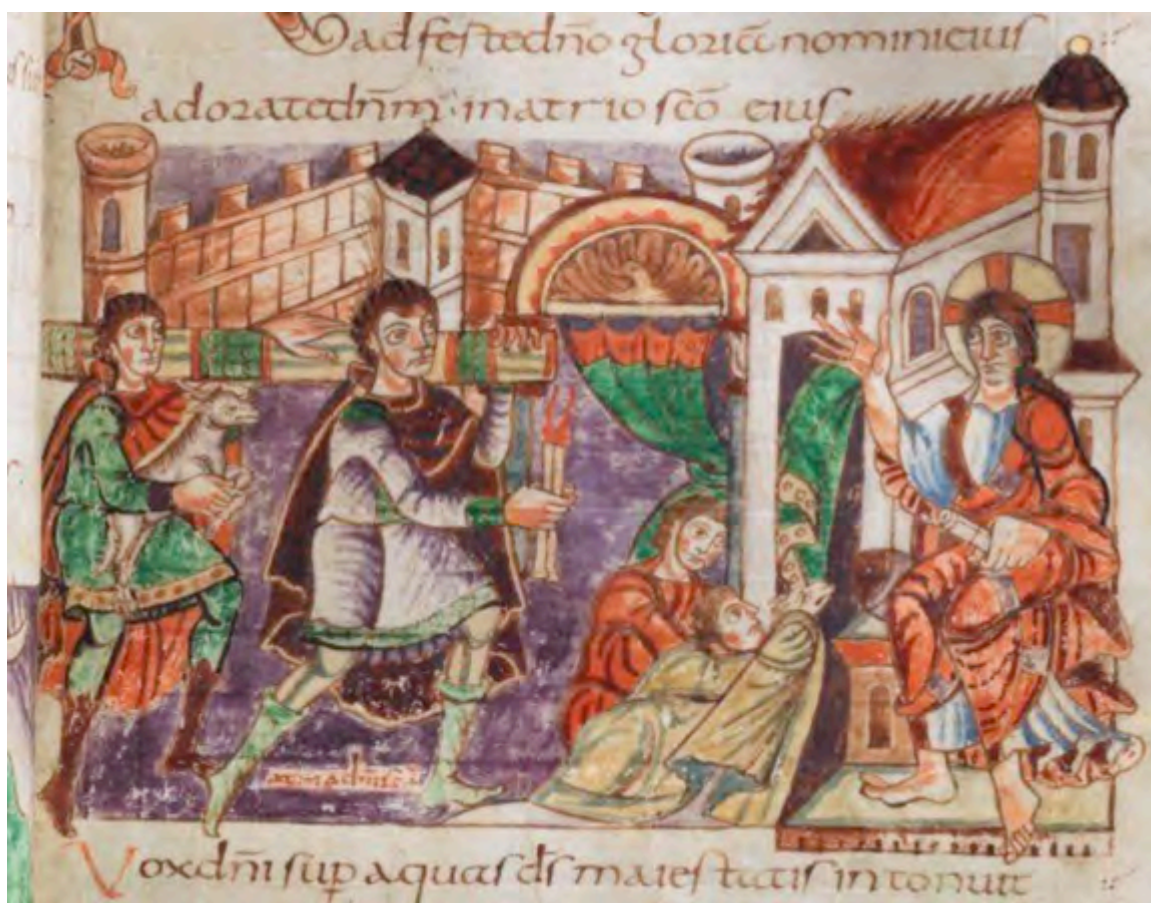 adfertedño gloriã nominieius
adoratedñm· inatrio scõ eius
Voxdñi sup̱ aquas d̃s maiestatis intonuit